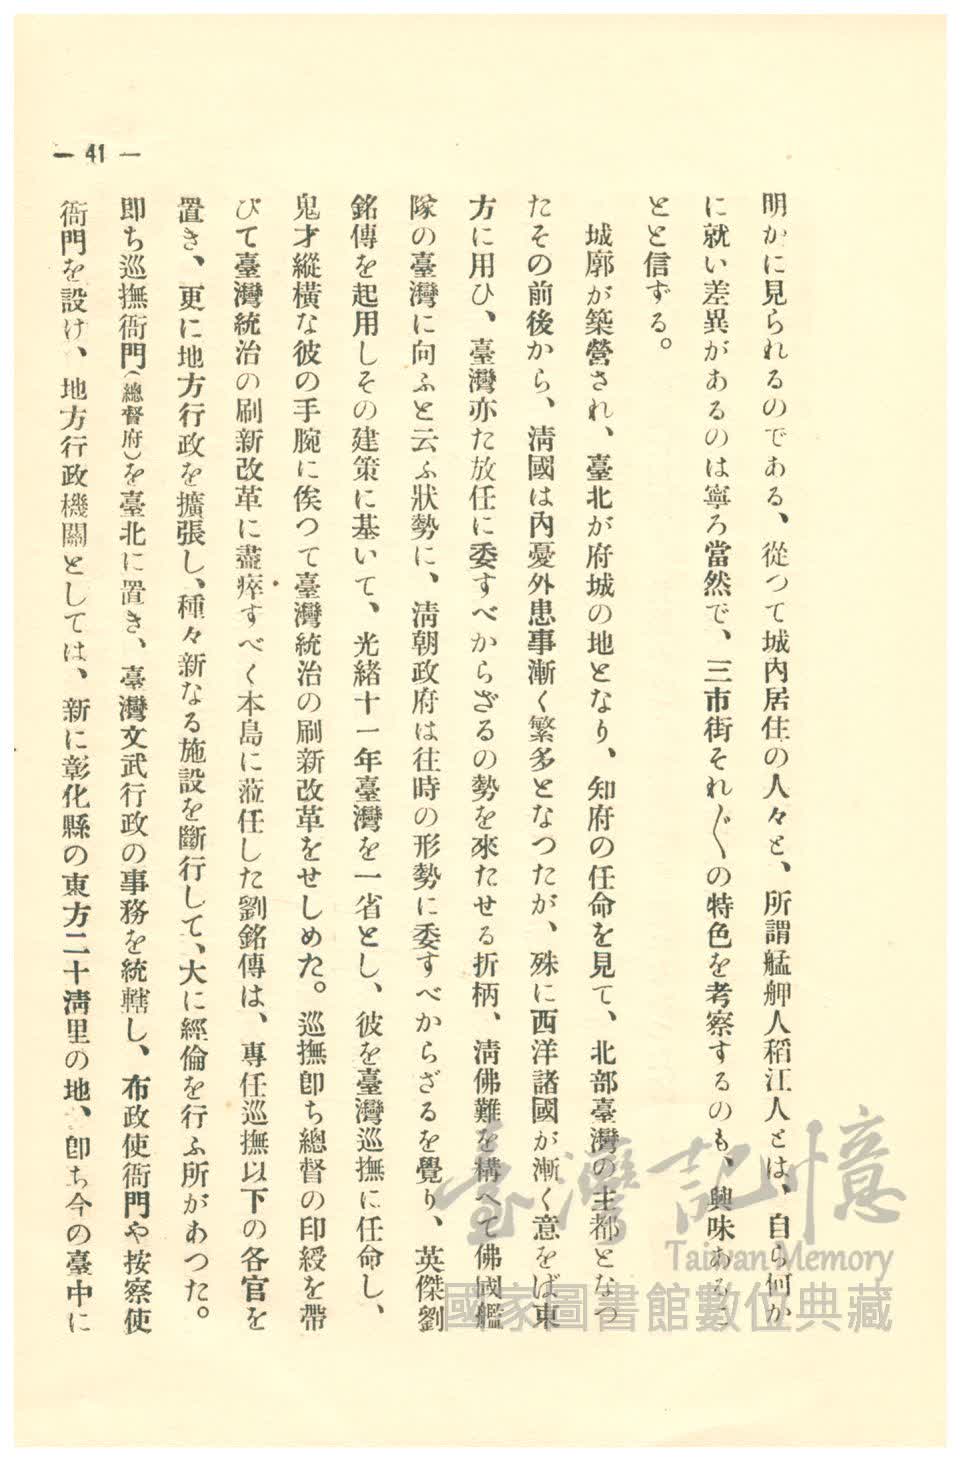 明かに見られるのである、從つて城内居住の人々と、所謂艋舺人稻江人とは、自ら何か
に就い差異があるのは寧ろ當然で、三市街それ〴〵の特色を考察するのも、興味あるこ
とと信ずる。
城廓が築營され、臺北が府城の地となり、知府の任命を見て、北部臺灣の主都となつ
たその前後から、淸國は內憂外患事漸く繁多となつたが、殊に西洋諸國が漸く意をば東
方に用ひ、臺灣亦た放任に委すべからざるの勢を來たせる折柄、淸佛難を構へて佛國艦
隊の臺灣に向ふと云ふ狀勢に、淸朝政府は往時の形勢に委すべからざるを覺り、英傑劉
銘傳を起用しその建策に基いて、光緖十一年臺灣を一省とし、彼を臺灣巡撫に任命し、
鬼才縱橫な彼の手腕に俟つて臺灣統治の刷新改革をせしめた。巡撫卽ち總督の印綬を帶
びて臺灣統治の刷新改革に盡瘁すべく本島に蒞任した劉銘傳は、專任巡撫以下の各官を
置き、更に地方行政を擴張し、種々新なる施設を斷行して、大に經倫を行ふ所があつた。
卽ち巡撫衙門(總督府)を臺北に置き、臺灣文武行政の事務を統轄し、布政使衙門や按察使
衙門を設け、地方行政機關としては、新に彰化縣の東方二十淸里の地、卽ち今の臺中に
— 41 —
臺灣記憶
Taiwan Memory
國家圖書館數位典藏